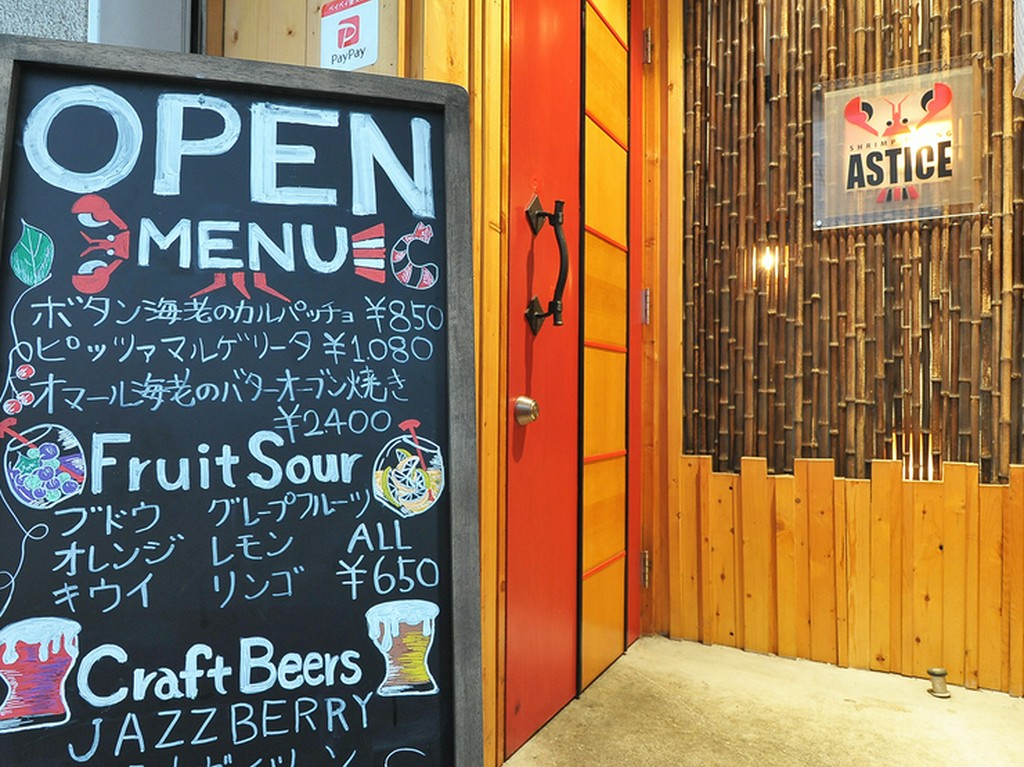 OPEN
MENU
ボタン海老のカルパッチョ ¥850
ピッツァマルゲリータ ¥1.080
オマール海老のバターオーブン焼き
¥2400
Fruit Sour
ブドウ グレープフルーツ
オレンジ レモン ALL
キウイ リンゴ ¥650
Craft Beers
JAZZBERRY
PayPay
SHRIMP
ASTICE